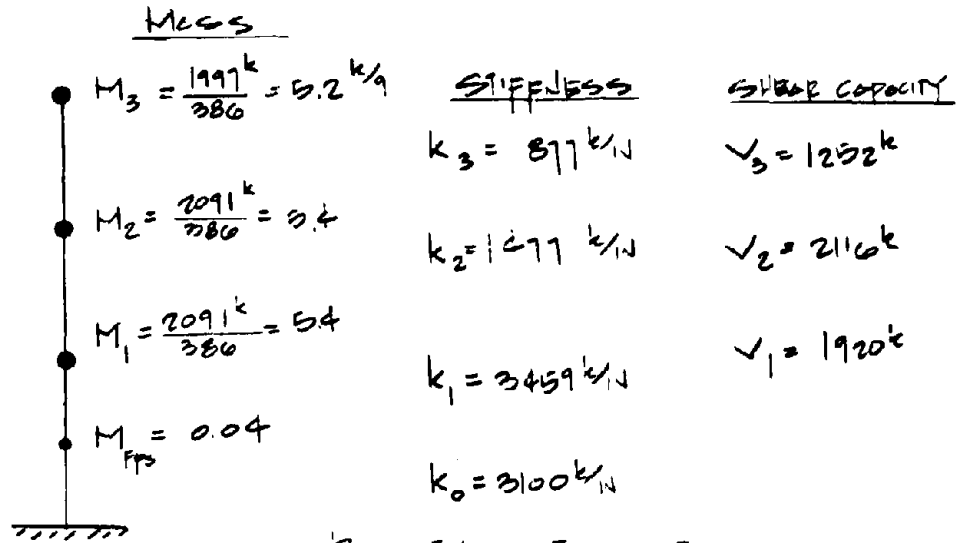 Mass
M3 = 1997k/386 = 5.2 k/g
M2 = 2091k/386 = 5.4
M1 = 2091k/386 = 5.4
MFPS = 0.04
STIFFNESS
k3 = 877 k/IN
k2 = 1477 k/IN
k1 = 3459 k/IN
k0 = 3100 k/IN
SHEAR CAPACITY
V3 = 1252k
V2 = 2116k
V1 = 1920k